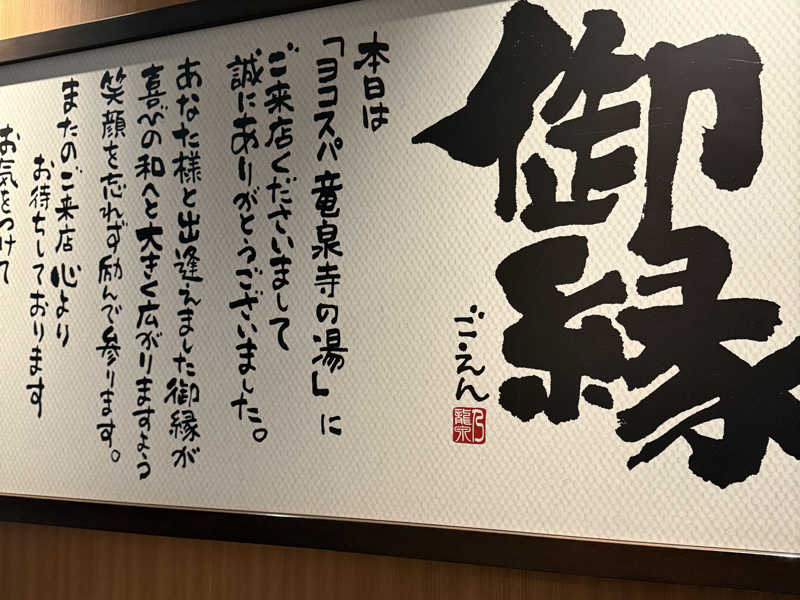 御縁
ご・えん
乃龍泉
本日は
「ヨコスパ竜泉寺の湯」に
ご来店くださいまして
誠にありがとうございました。
あなた様と出逢えました御縁が
喜びの和へと大きく広がりますよう
笑顔を忘れず励んで参ります。
またのご来店心より
お待ちしております
お気をつけて